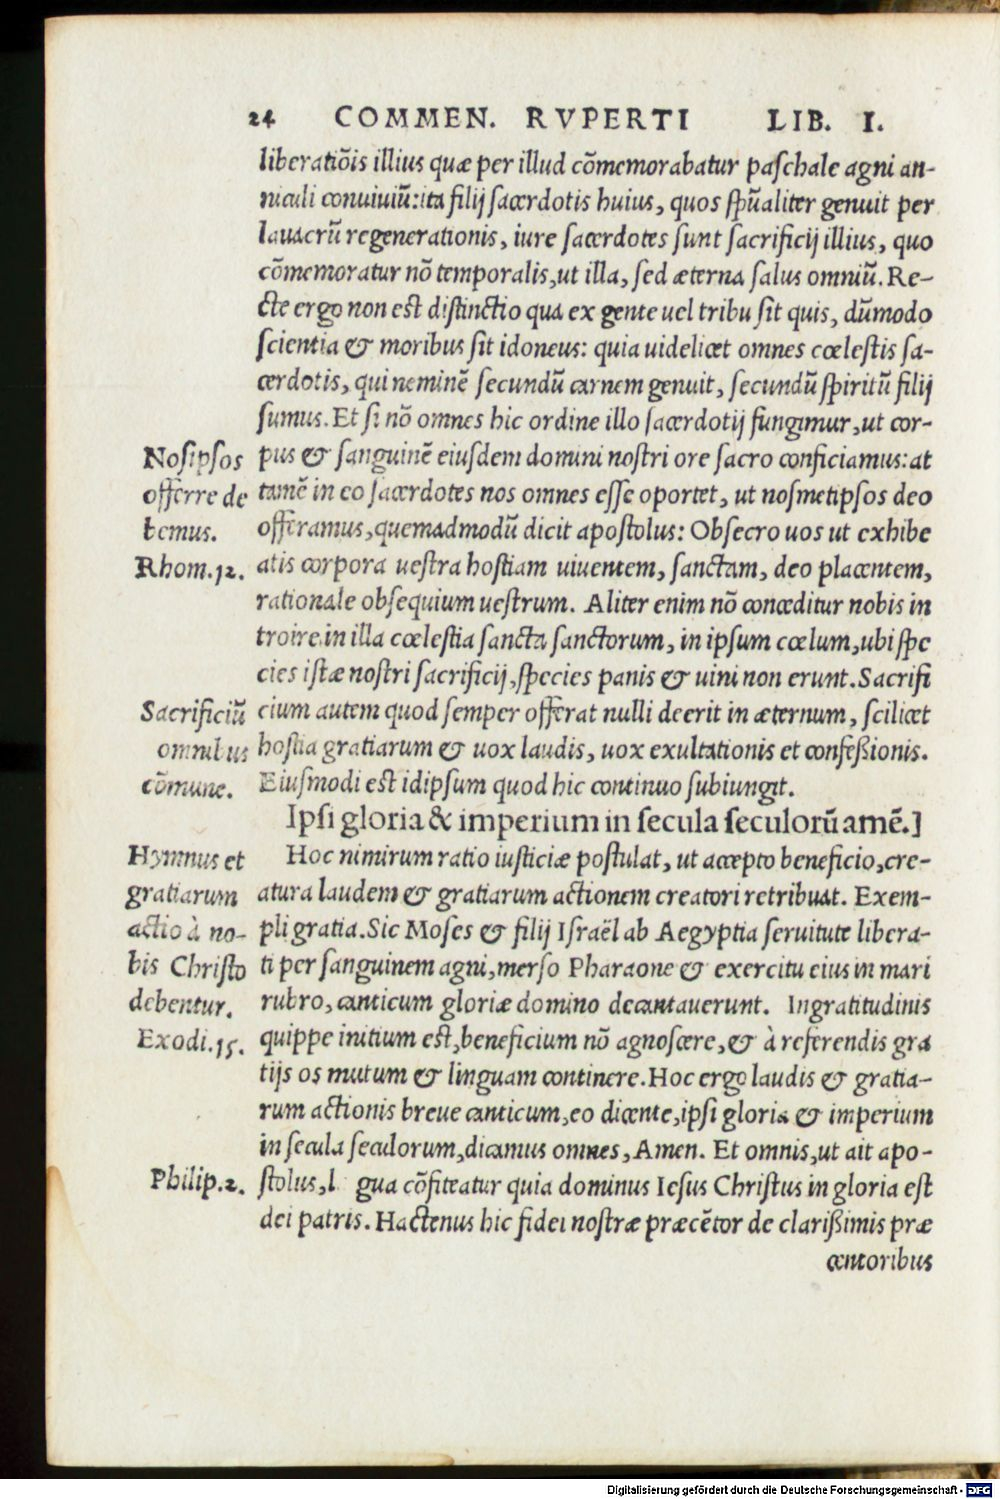 24 COMMEN. RVPERTI LIB. I.
liberatiōis illius quæ per illud cōmemorabatur paſchale agni an-
niculi conuiuiū:ita filij ſacerdotis huius, quos ſpūaliter genuit per
lauacrū regenerationis, iure ſacerdotes ſunt ſacrificij illius, quo
cōmemoratur nō temporalis,ut illa, ſed æterna ſalus omniū. Re-
cte ergo non est distinctio qua ex gente uel tribu ſit quis, dūmodo
ſcientia & moribus ſit idoneus: quia uidelicet omnes cœlestis ſa-
cerdotis, qui neminē ſecundū carnem genuit, ſecundū ſpiritū filij
ſumus. Et ſi nō omnes hic ordine illo ſacerdotij fungimur,ut cor-
pus & ſanguinē eiuſdem domini nostri ore ſacro conficiamus: at
tamē in eo ſacerdotes nos omnes eſſe oportet, ut noſmetipſos deo
offeramus,quemadmodū dicit apostolus: Obſecro uos ut exhibe
atis corpora uestra hostiam uiuentem, ſanctam, deo placentem,
rationale obſequium uestrum. Aliter enim nō conceditur nobis in
troire in illa cœlestia ſancta ſanctorum, in ipſum cœlum,ubi ſpe
cies istæ nostri ſacrificij,ſpecies panis & uini non erunt. Sacrifi
cium autem quod ſemper offerat nulli deerit in æternum, ſcilicet
hostia gratiarum & uox laudis, uox exultationis et confeßionis.
Eiuſmodi est idipſum quod hic continuo ſubiungit.
Ipſi gloria & imperium in ſecula ſeculorū amē.]
Hoc nimirum ratio iusticiæ postulat, ut accepto beneficio,cre-
atura laudem & gratiarum actionem creatori retribuat. Exem-
pli gratia. Sic Moſes & filij Iſraël ab Aegyptia ſeruitute libera-
ti per ſanguinem agni,merſo Pharaone & exercitu eius in mari
rubro, canticum gloriæ domino decantauerunt. Ingratitudinis
quippe initium est,beneficium nō agnoſcere,& à referendis gra
tijs os mutum & linguam continere. Hoc ergo laudis & gratia-
rum actionis breue canticum,eo dicente,ipſi gloria & imperium
in ſecula ſeculorum,dicamus omnes, Amen. Et omnis,ut ait apo-
stolus,l gua cōfiteatur quia dominus Ieſus Christus in gloria est
dei patris. Hactenus hic fidei nostræ præcētor de clarißimis præ
centoribus
Noſipſos
offerre de
bemus.
Rhom.12.
Sacrificiū
omnibus
cōmune.
Hymnus et
gratiarum
actio à no-
bis Christo
debentur.
Exodi.15.
Philip.2.
Digitalisierung gefördert durch die Deutsche Forschungsgemeinschaft - DFG